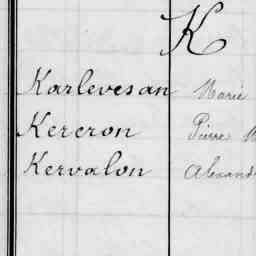 K
Karlevesan Marie
Kercron Pierre
Kervalon Alexand